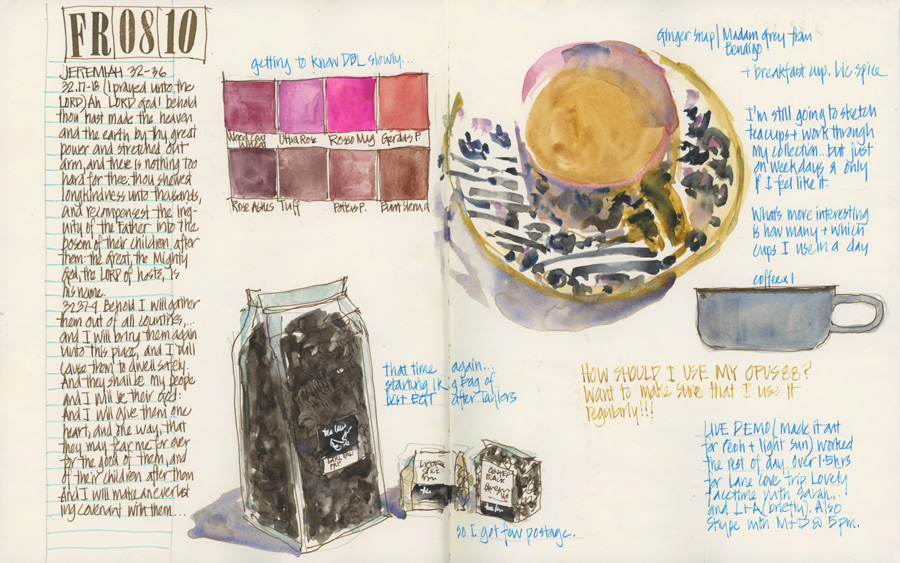 FR 08 10
JEREMIAH 32-36
32.17-18 (I prayed unto the
LORD) Ah LORD God! behold
thou hast made the heaven
and the earth by thy great
power and stretched out
arm, and there is nothing too
hard for thee: thou shewest
lovingkindness unto thousands,
and recompensest the iniq-
uity of the Father into the
bosom of their children after
them: the great, the Mighty
God, the LORD of hosts, is
his name.
Behold I will gather
them out of all countries,...
and I will bring them again
unto this place, and I will
cause them to dwell safely.
And they shall be my people
and I will be their God:
And I will give them one
heart, and one way, that
they may fear me for ever
for the good of them, and
of their children after them
And I will make an everlast
ing covenant with them...
getting to know DBL slowly...
Ultra Rose
Rosso Mug
Rose Ashes
Tuff
that time again...
starting 1kg bag of
best EGT after Taylors
so I got few postage...
Ginger Snap/Madam Grey from
Bendigo
+ breakfast cup. Lic spice
I'm still going to sketch
teacups + work through
my collection... but just
on weekdays & only
if I feel like it.
What's more interesting
is how many + which
cups I use in a day
coffee x 1
HOW SHOULD I USE MY OPUS 88?
Want to make sure that I use it
regularly!!!
LIVE DEMO (made it ant
for + light sun) worked
the rest of day. Over 1.5hrs
for Lane Cove trip. Lovely
facetime with Sarah...
and L+A (briefly). Also
Skype with M+D @ 5pm.